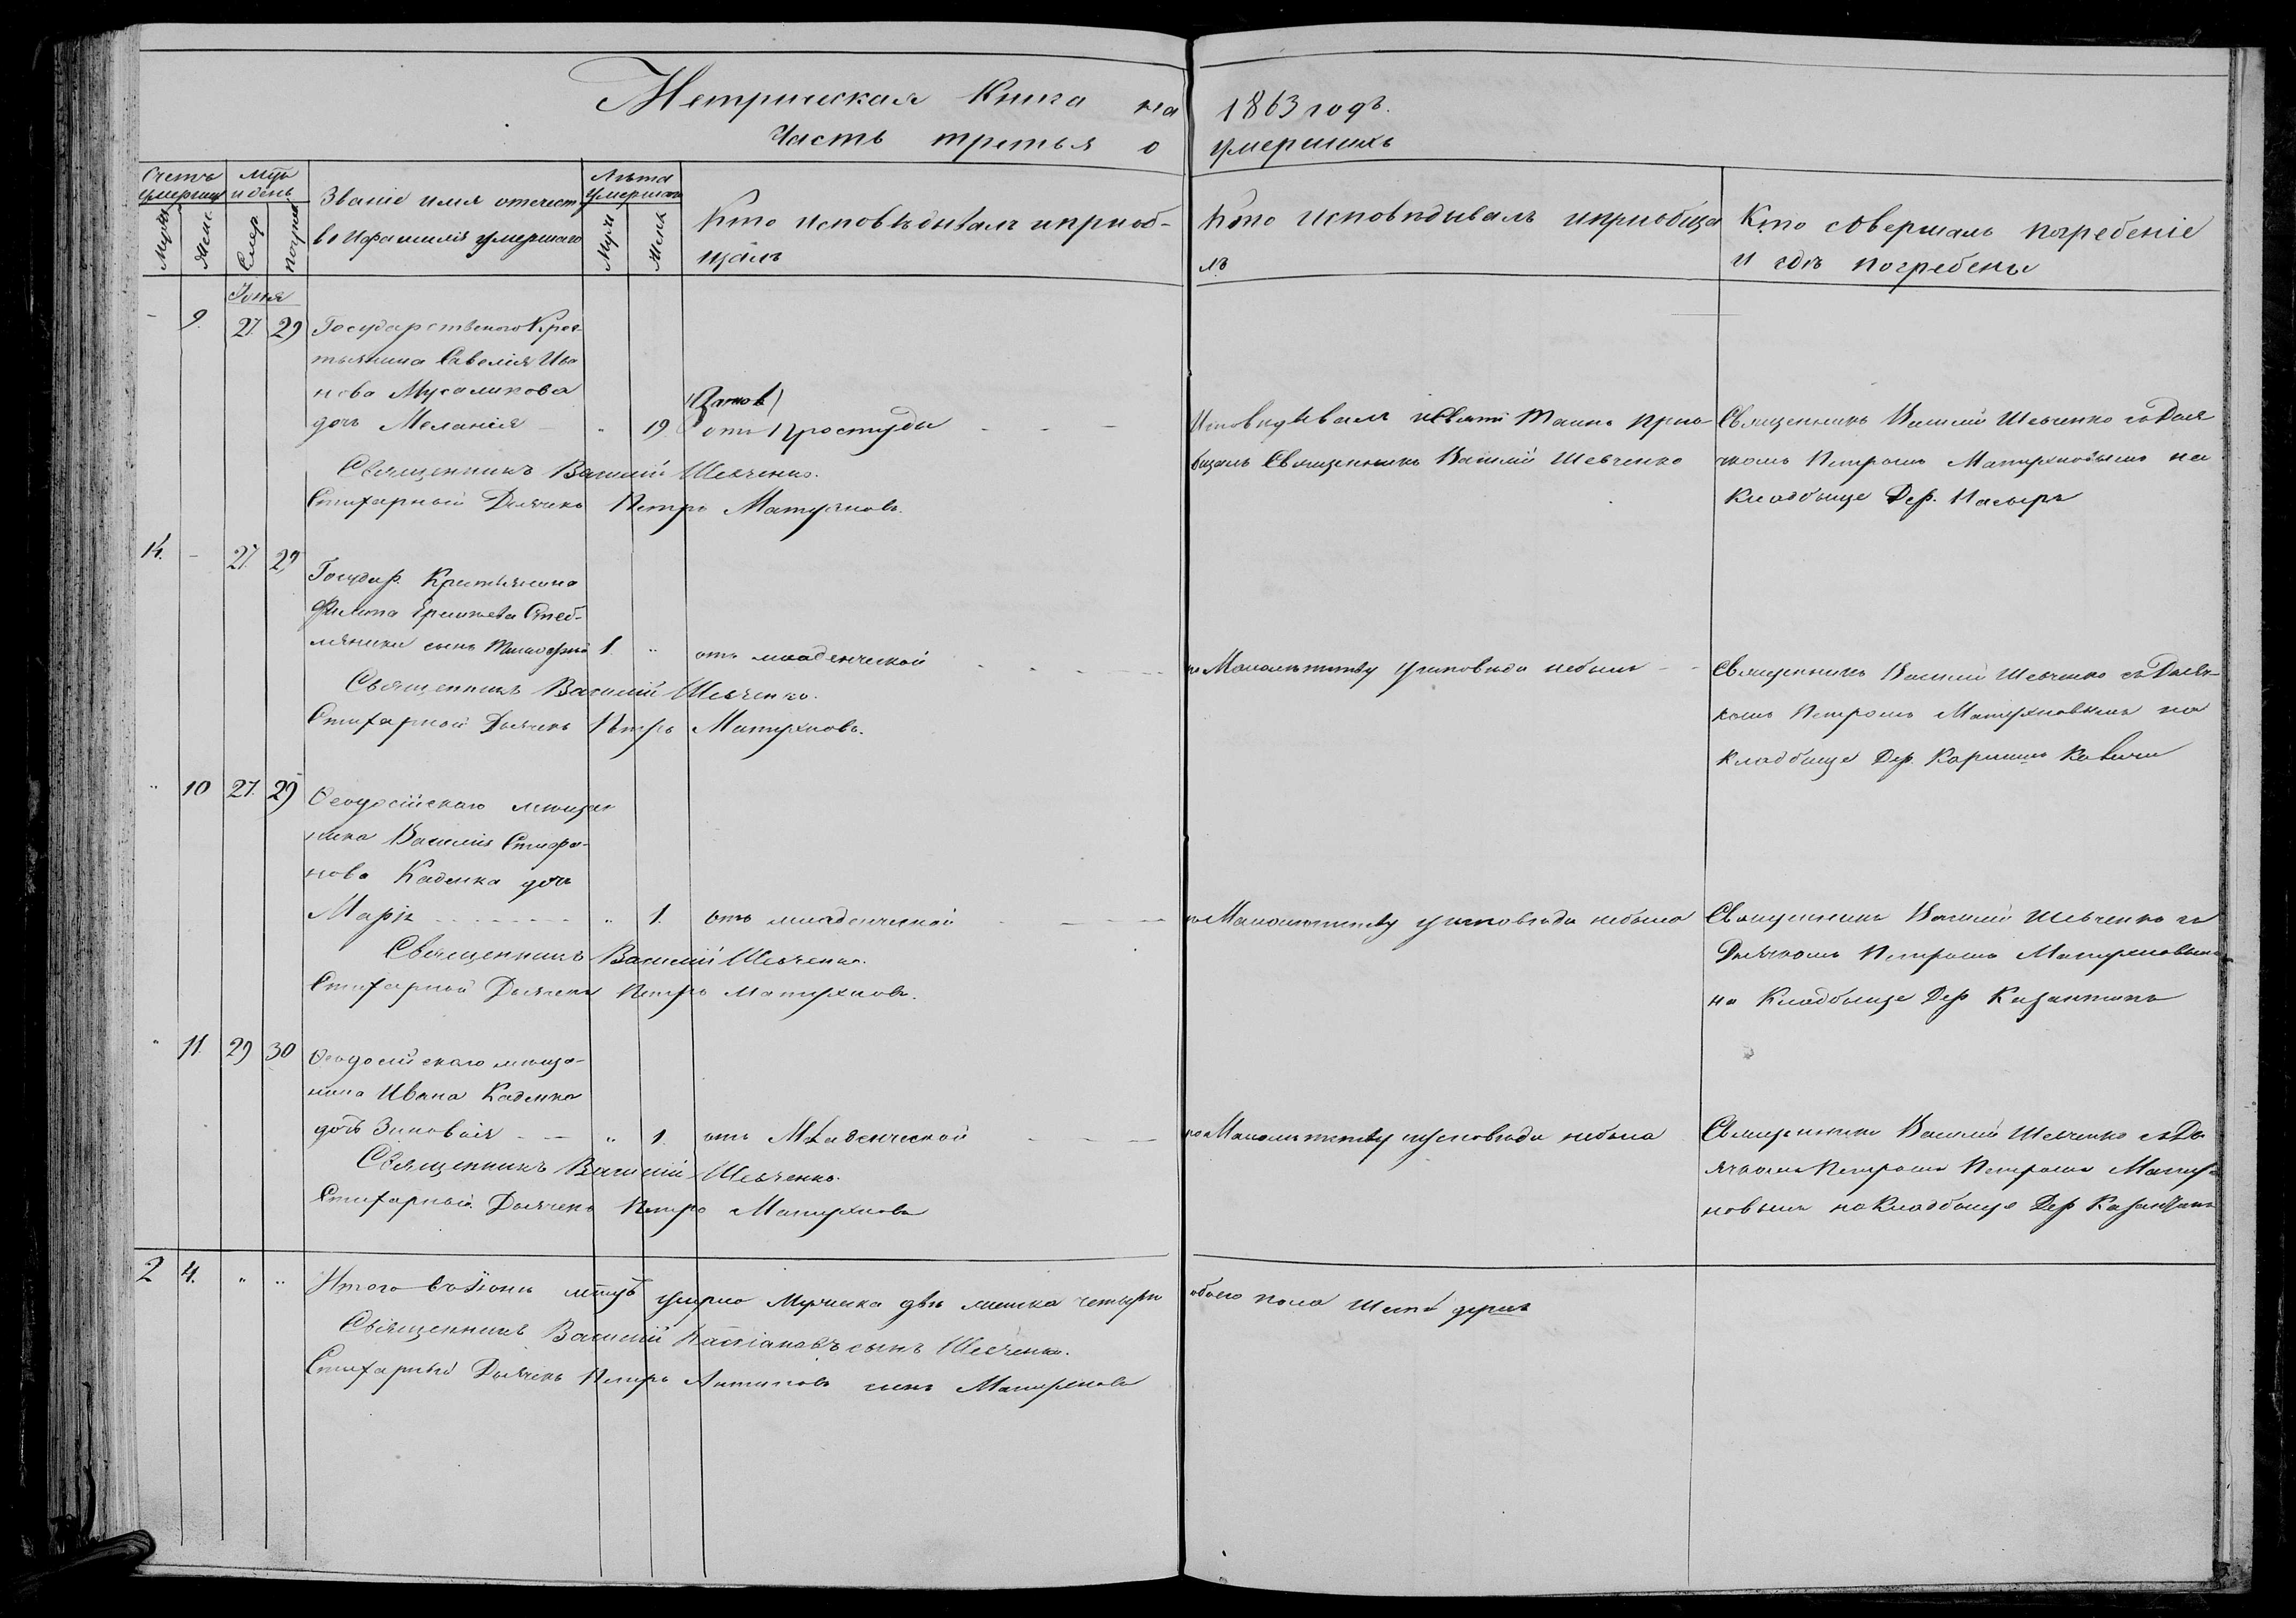 Метрическая Книга на 1863 годъ.
Часть третья о умершихъ
Счетъ умершихъ
Муж. Жен.
Мцъ и день
Смер. погреб.
Званіе имя отечест
во и фамилія умершаго
Лѣта умершаго
Муж. Жен.
Кто исповѣдывалъ и приоб-
щалъ
Кто исповѣдывалъ и приобща
лъ
Кто совершалъ погребеніе
и гдѣ погребены
Іюня
- 9. 27. 29 Государственого Крес
тьянина Савелія Ива
нова Мусаликова
дочь Меланія - " 19 отъ Простуды
Исповѣдывалъ и Святі Таинъ приоб
бщалъ Священникъ Василій Шевченко
Священникъ Василій Шевченко съ Дья
чкомъ Петромъ на
Кладбище Дер.
Священникъ Василій Шевченко.
Стихарный Дьячекъ Петръ
14. - 27. 29 Государ. Крестьянина
Филипа Стеб-
сынъ Тимофей 1. " отъ младенческой
по Малолетству у исповѣди небылъ
Священникъ Василій Шевченко съ Дьяч-
комъ Петромъ на
кладбище Дер.
Священникъ Василій Шевченко.
Стихарной Дьячекъ Петръ
" 10 27. 29 Ѳеодосійскаго мещан
нина Василія Стефа-
нова Каденка дочь
Марія " 1. отъ младенческой
по Малолетству у исповѣди небыла
Священникъ Василій Шевченко съ
Дьячкомъ Петромъ
на Кладбище Дер
Священникъ Василій Шевченко.
Стихарной Дьячекъ Петръ
" 11. 29 30 Ѳеодосійскаго меща-
нина Ивана Каденка
дочь Зиновія " 1. отъ Младенческой
по Малолетству у исповѣди небыла
Священникъ Василій Шевченко съ Дь
ячкомъ Петромъ Петромъ
новымъ на Кладбище Дер
Священникъ Василій Шевченко.
Стихарной Дьячекъ Петръ
2 4. " " Итого въ Іюнѣ мцѣ умерло Мужеска два женска четыре обоего пола шесть душъ
Священникъ Василій сынъ Шевченко.
Стихарный Дьячекъ Петръ Антиповъ сынъ